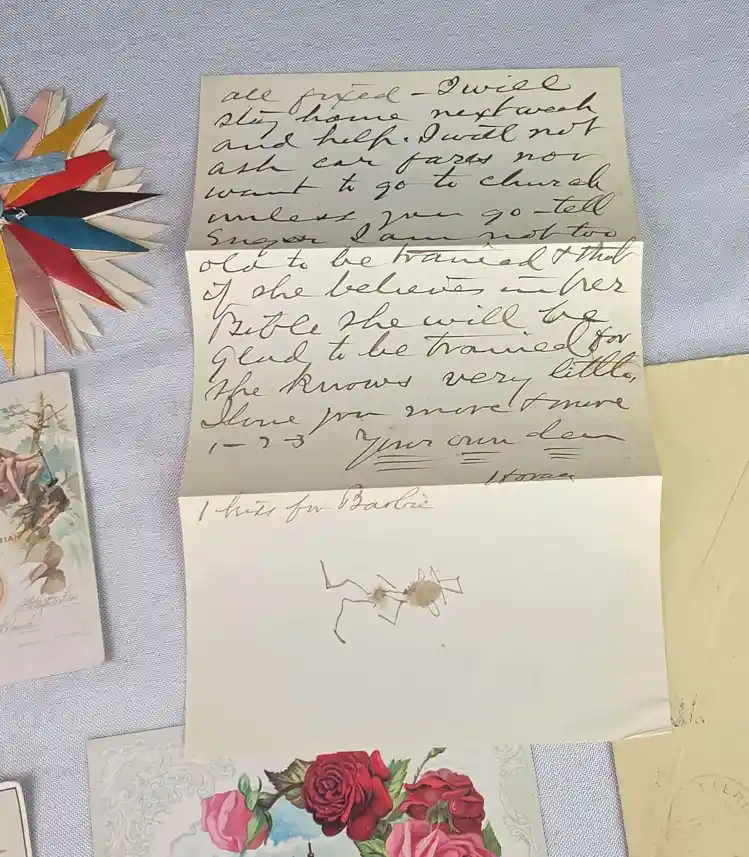 all fixed - I will
stay home next week
and help. I will not
ask car fares nor
want to go to church
unless you go - tell
I am not too
old to be trained & that
if she believes in her
Bible she will be
Glad to be trained for
she knows very little,
I love you more & more
1-2-3 Your own dear
Horace
1 kiss for Barbie